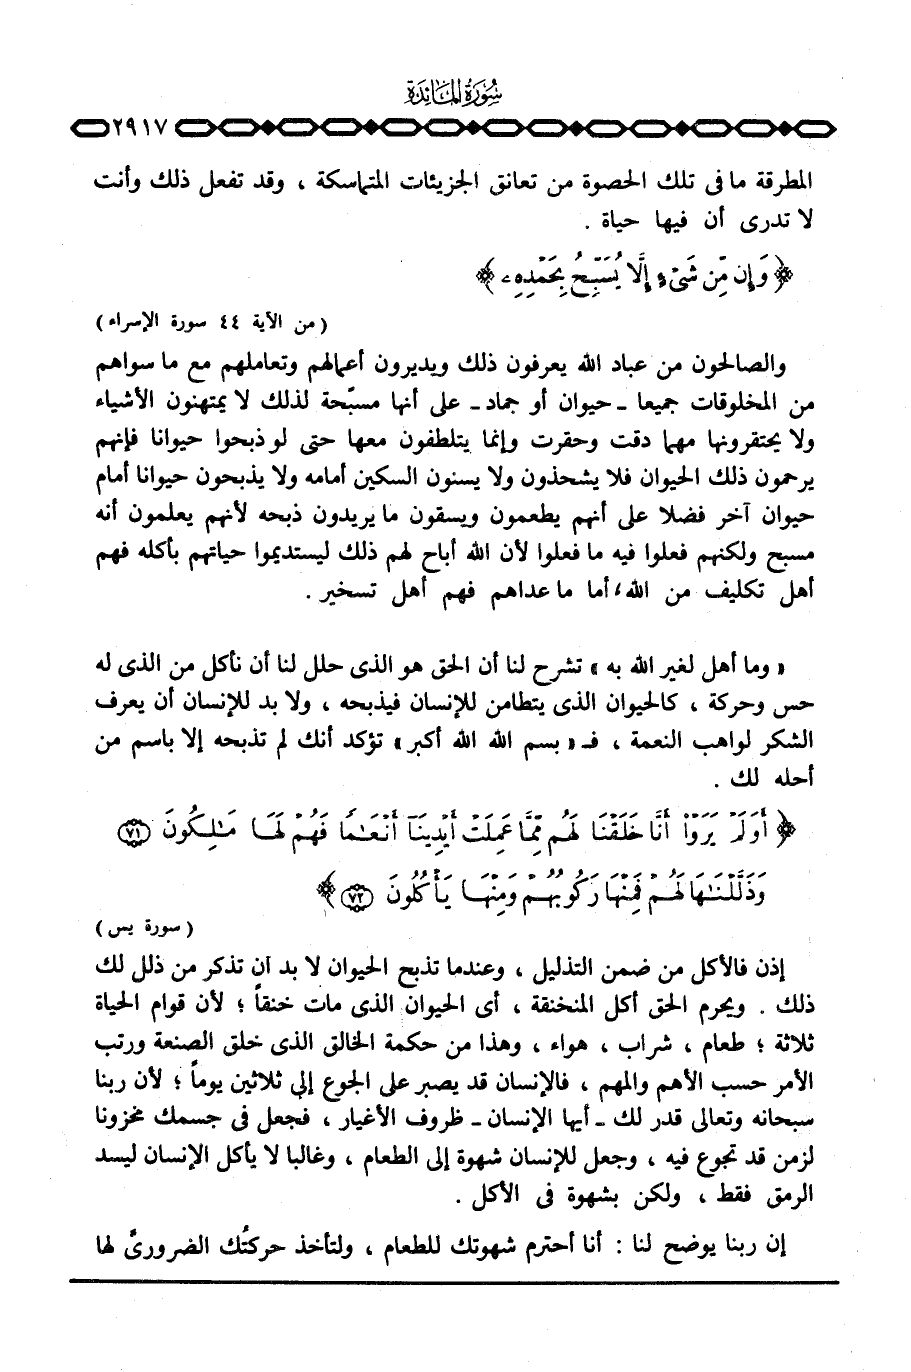 سُورَةُ المَائِدَة
٢٩١٧
المطرقة ما فى تلك الحصوة من تعانق الجزيئات المتماسكة ، وقد تفعل ذلك وأنت
لا تدرى أن فيها حياة .
﴿ وَإِن مِّن شَىْءٍ إِلَّا يُسَبِّحُ بِحَمْدِهِۦ ﴾
( من الآية ٤٤ سورة الإسراء )
والصالحون من عباد الله يعرفون ذلك ويديرون أعمالهم وتعاملهم مع ما سواهم
من المخلوقات جميعا ـ حيوان أو جماد ـ على أنها مسبّحة لذلك لا يمتهنون الأشياء
ولا يحتقرونها مهما دقت وحقرت وإنما يتلطفون معها حتى لو ذبحوا حيوانا فإنهم
يرحمون ذلك الحيوان فلا يشحذون ولا يسنون السكين أمامه ولا يذبحون حيوانا أمام
حيوان آخر فضلا على أنهم يطعمون ويسقون ما يريدون ذبحه لأنهم يعلمون أنه
مسبح ولكنهم فعلوا فيه ما فعلوا لأن الله أباح لهم ذلك ليستديموا حياتهم بأكله فهم
أهل تكليف من الله ، أما ما عداهم فهم أهل تسخير .
« وما أهل لغير الله به » تشرح لنا أن الحق هو الذى حلل لنا أن نأكل من الذى له
حس وحركة ، كالحيوان الذى يتطامن للإنسان فيذبحه ، ولا بد للإنسان أن يعرف
الشكر لواهب النعمة ، فـ « بسم الله الله أكبر » تؤكد أنك لم تذبحه إلا باسم من
أحله لك .
﴿ أَوَلَمْ يَرَوْا۟ أَنَّا خَلَقْنَا لَهُم مِّمَّا عَمِلَتْ أَيْدِينَآ أَنْعَٰمًا فَهُمْ لَهَا مَٰلِكُونَ ٧١
وَذَلَّلْنَٰهَا لَهُمْ فَمِنْهَا رَكُوبُهُمْ وَمِنْهَا يَأْكُلُونَ ٧٢ ﴾
( سورة يس )
إذن فالأكل من ضمن التذليل ، وعندما تذبح الحيوان لا بد أن تذكر من ذلل لك
ذلك . ويحرم الحق أكل المنخنقة ، أى الحيوان الذى مات خنقاً ؛ لأن قوام الحياة
ثلاثة ؛ طعام ، شراب ، هواء ، وهذا من حكمة الخالق الذى خلق الصنعة ورتب
الأمر حسب الأهم والمهم ، فالإنسان قد يصبر على الجوع إلى ثلاثين يوماً ؛ لأن ربنا
سبحانه وتعالى قدر لك ـ أيها الإنسان ـ ظروف الأغيار ، فجعل فى جسمك مخزونا
لزمن قد تجوع فيه ، وجعل للإنسان شهوة إلى الطعام ، وغالبا لا يأكل الإنسان ليسد
الرمق فقط ، ولكن بشهوة فى الأكل .
إن ربنا يوضح لنا : أنا أحترم شهوتك للطعام ، ولتأخذ حركتُك الضرورىَّ لها